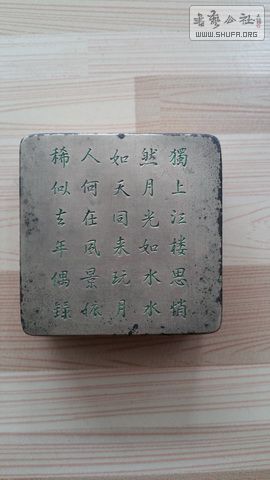 獨上江楼思悄
然月光如水水
如天同来玩月
人何在風景依
稀似去年偶録
書藝公社
WWW.SHUFA.ORG